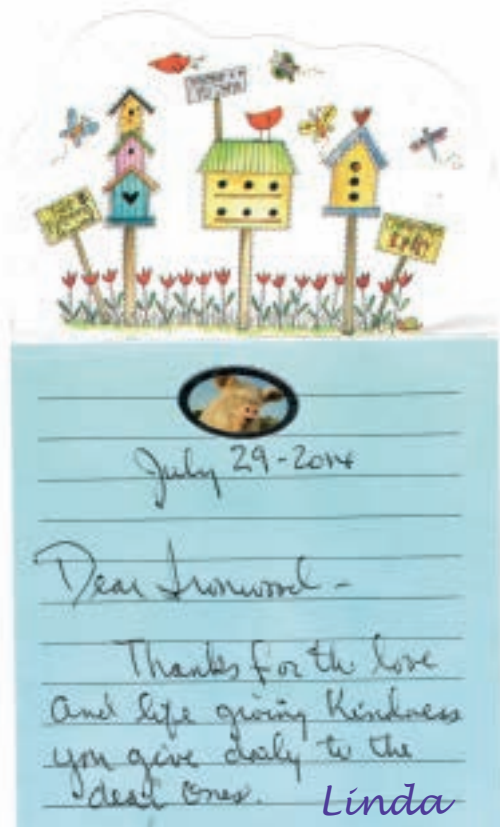 July 29-2014
Dear Ironwood -
Thanks for the love
and life giving Kindness
you give daily to the
dear ones.
Linda